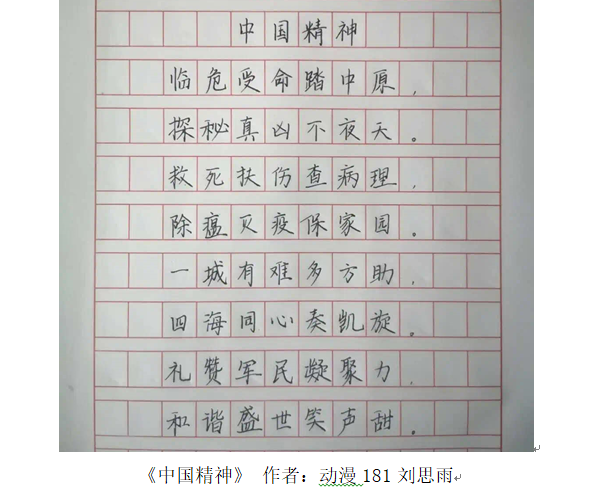 中国精神
临危受命踏中原，
探秘真凶不夜天。
救死扶伤查病理，
除瘟灭疫保家园。
一城有难多方助，
四海同心奏凯旋。
礼赞军民凝聚力，
和谐盛世笑声甜。
《中国精神》 作者：动漫181刘思雨